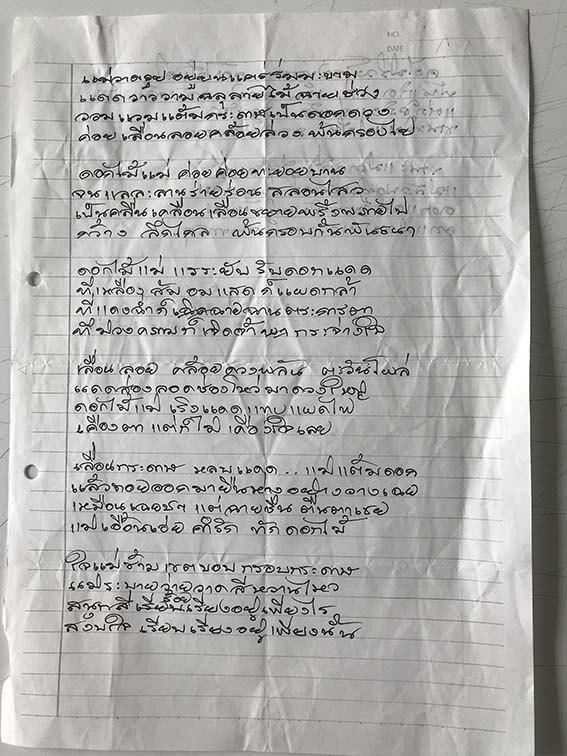 NO.
DATE
แม่วาดรูป อยู่บนแคร่ร่มมะขาม
แดดวาววามฉลุสายไม้ฉายช่วง
วอมแวมแต้มกระดาษเป็นดอกดวง
ค่อยเลื่อนลอยคล้อยล่วง พ้นกรอบไป
ดอกไม้แม่ ค่อยค่อยทะยอยบาน
จนแลละลานร่ายร่อน สลอนไสว
เป็นคลื่นเคลื่อนเลื่อนขยายพริ้งพรายไป
กว้าง ลึกไกล พ้นกรอบกั้นพันธนา
ดอกไม้แม่ แรระยับ รับดอกแดด
ที่เหลือง ส้ม อมแสด ก็แผดกล้า
ที่แดงฉ่ำ ก็เฉิดฉายฉานตระการตา
ที่ม่วงคราม ก็เชิดหน้า กระจ่างใจ
เลื่อน ลอย คล้อยดวงพลัน ตะวันโพล่
แดดส่องลอดช่องโหว่มาดวงใหญ่
ดอกไม้แม่ เริงแดด แทบแผดไฟ
เคืองตา แต่ก็ไม่ เคืองใจเลย
เลื่อนกระดาษ หลบแดด.. แม่แต้มดอก
แล้วถอยออกมายืนหยุดอย่างวางเฉย
เหมือนเฉยชา แต่ฉายชื่น ตื่นตาเชย
แม่เอื้อนเอ่ย คำรัก ทัก ดอกไม้
ใจแม่ข้าม เขตขอบ กรอบกระดาษ
แม่ระบายว่ายวาดสีหวานไหว
สนุกสีเรียบเรียงอยู่เพียงไร
สงบใจ เรียบเรียงอยู่เพียงนั้น